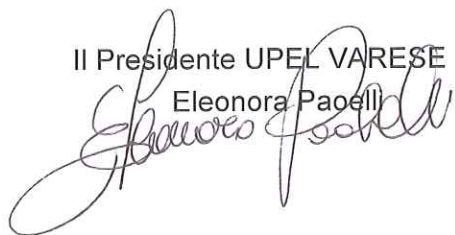 Il Presidente UPEL VARESE
Eleonora Paoelli
Eleonora Paoelli